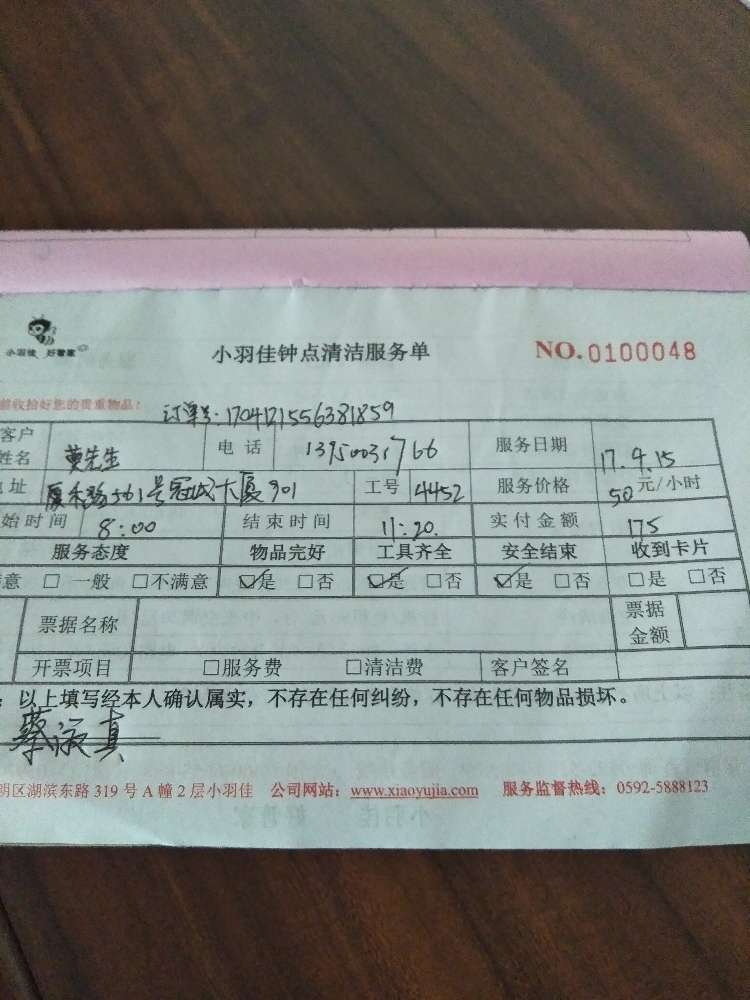 小羽佳 好管家
小羽佳钟点清洁服务单 NO.0100048
前收拾好您的贵重物品！ 订单号：1704121556381859
客户姓名 黄先生 电话 13950031766 服务日期 17.4.15
址 厦禾路561号冠城大厦901 工号 4452 服务价格 50元/小时
始时间 8:00 结束时间 11:20 实付金额 175
服务态度 物品完好 工具齐全 安全结束 收到卡片
意 □一般 □不满意 ☑是 □否 ☑是 □否 ☑是 □否 □是 □否
票据名称 票据金额
开票项目 □服务费 □清洁费 客户签名
：以上填写经本人确认属实，不存在任何纠纷，不存在任何物品损坏。
蔡淑真
明区湖滨东路319号A幢2层小羽佳 公司网站：www.xiaoyujia.com 服务监督热线：0592-5888123